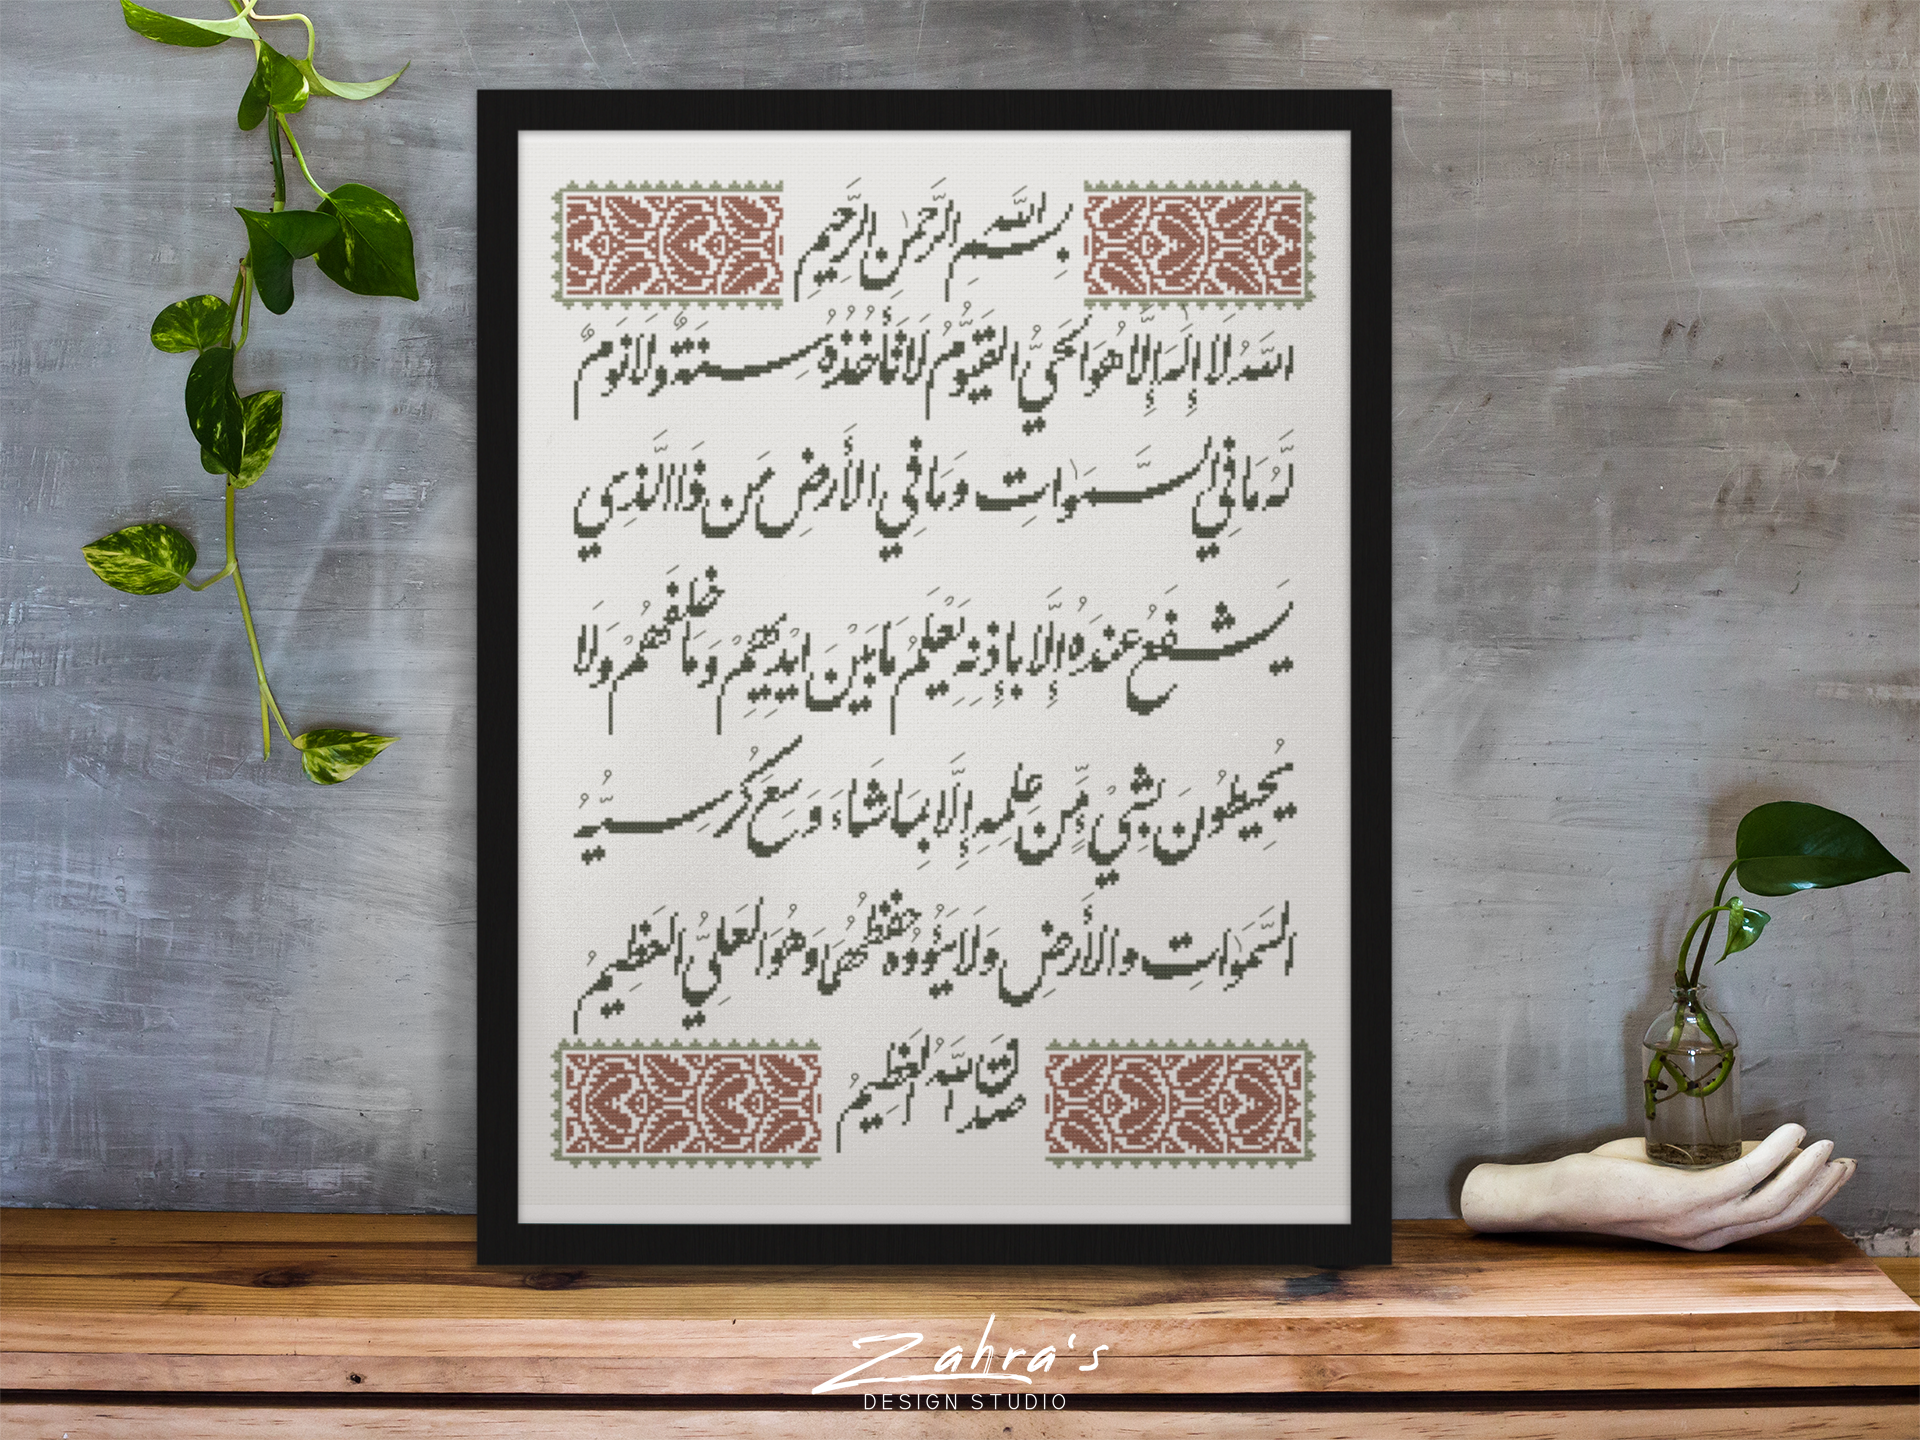 بِسْمِ اللَّهِ الرَّحْمٰنِ الرَّحِيمِ
اللَّهُ لَا إِلَهَ إِلَّا هُوَ الْحَيُّ الْقَيُّومُ لَا تَأْخُذُهُ سِنَةٌ وَلَا نَوْمٌ
لَّهُ مَا فِي السَّمَٰوَاتِ وَمَا فِي الْأَرْضِ مَن ذَا الَّذِي
يَشْفَعُ عِندَهُ إِلَّا بِإِذْنِهِ يَعْلَمُ مَا بَيْنَ أَيْدِيهِمْ وَمَا خَلْفَهُمْ وَلَا
يُحِيطُونَ بِشَيْءٍ مِّنْ عِلْمِهِ إِلَّا بِمَا شَاءَ وَسِعَ كُرْسِيُّهُ
السَّمَٰوَاتِ وَالْأَرْضَ وَلَا يَئُودُهُ حِفْظُهُمَا وَهُوَ الْعَلِيُّ الْعَظِيمُ
صدق اللَّهُ الْعَظِيمُ
Zahra's
DESIGN STUDIO